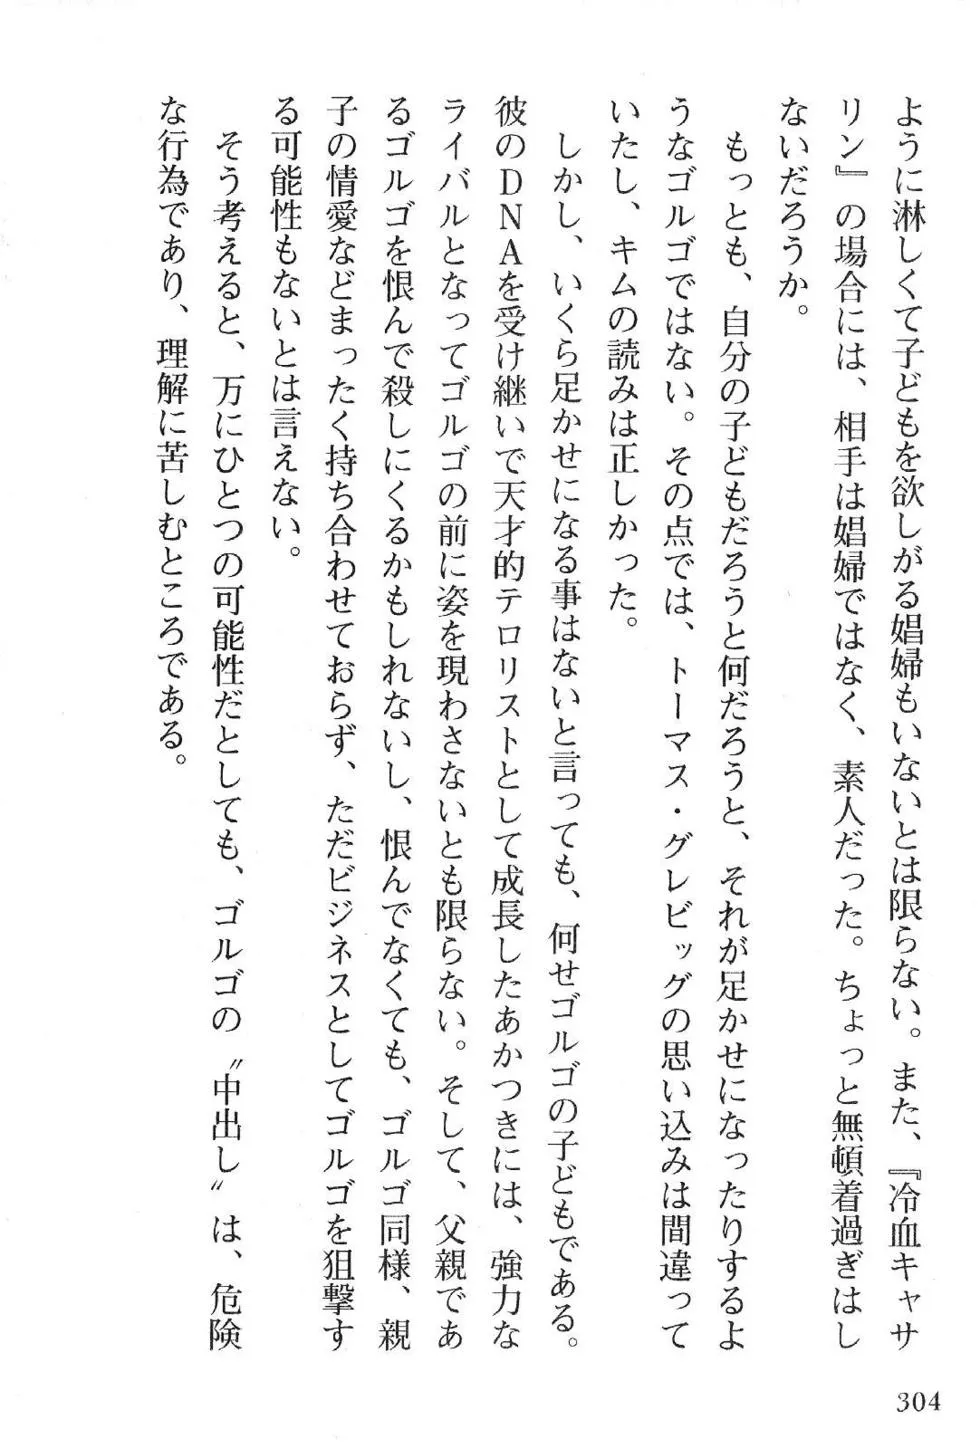 ように淋しくて子どもを欲しがる娼婦もいないとは限らない。また、『冷血キャサ
リン』の場合には、相手は娼婦ではなく、素人だった。ちょっと無頓着過ぎはし
ないだろうか。
　もっとも、自分の子どもだろうと何だろうと、それが足かせになったりするよ
うなゴルゴではない。その点では、トーマス・グレビッグの思い込みは間違って
いたし、キムの読みは正しかった。
　しかし、いくら足かせになる事はないと言っても、何せゴルゴの子どもである。
彼のＤＮＡを受け継いで天才的テロリストとして成長したあかつきには、強力な
ライバルとなってゴルゴの前に姿を現わさないとも限らない。そして、父親であ
るゴルゴを恨んで殺しにくるかもしれないし、恨んでなくても、ゴルゴ同様、親
子の情愛などまったく持ち合わせておらず、ただビジネスとしてゴルゴを狙撃す
る可能性もないとは言えない。
　そう考えると、万にひとつの可能性だとしても、ゴルゴの〝中出し〟は、危険
な行為であり、理解に苦しむところである。
304